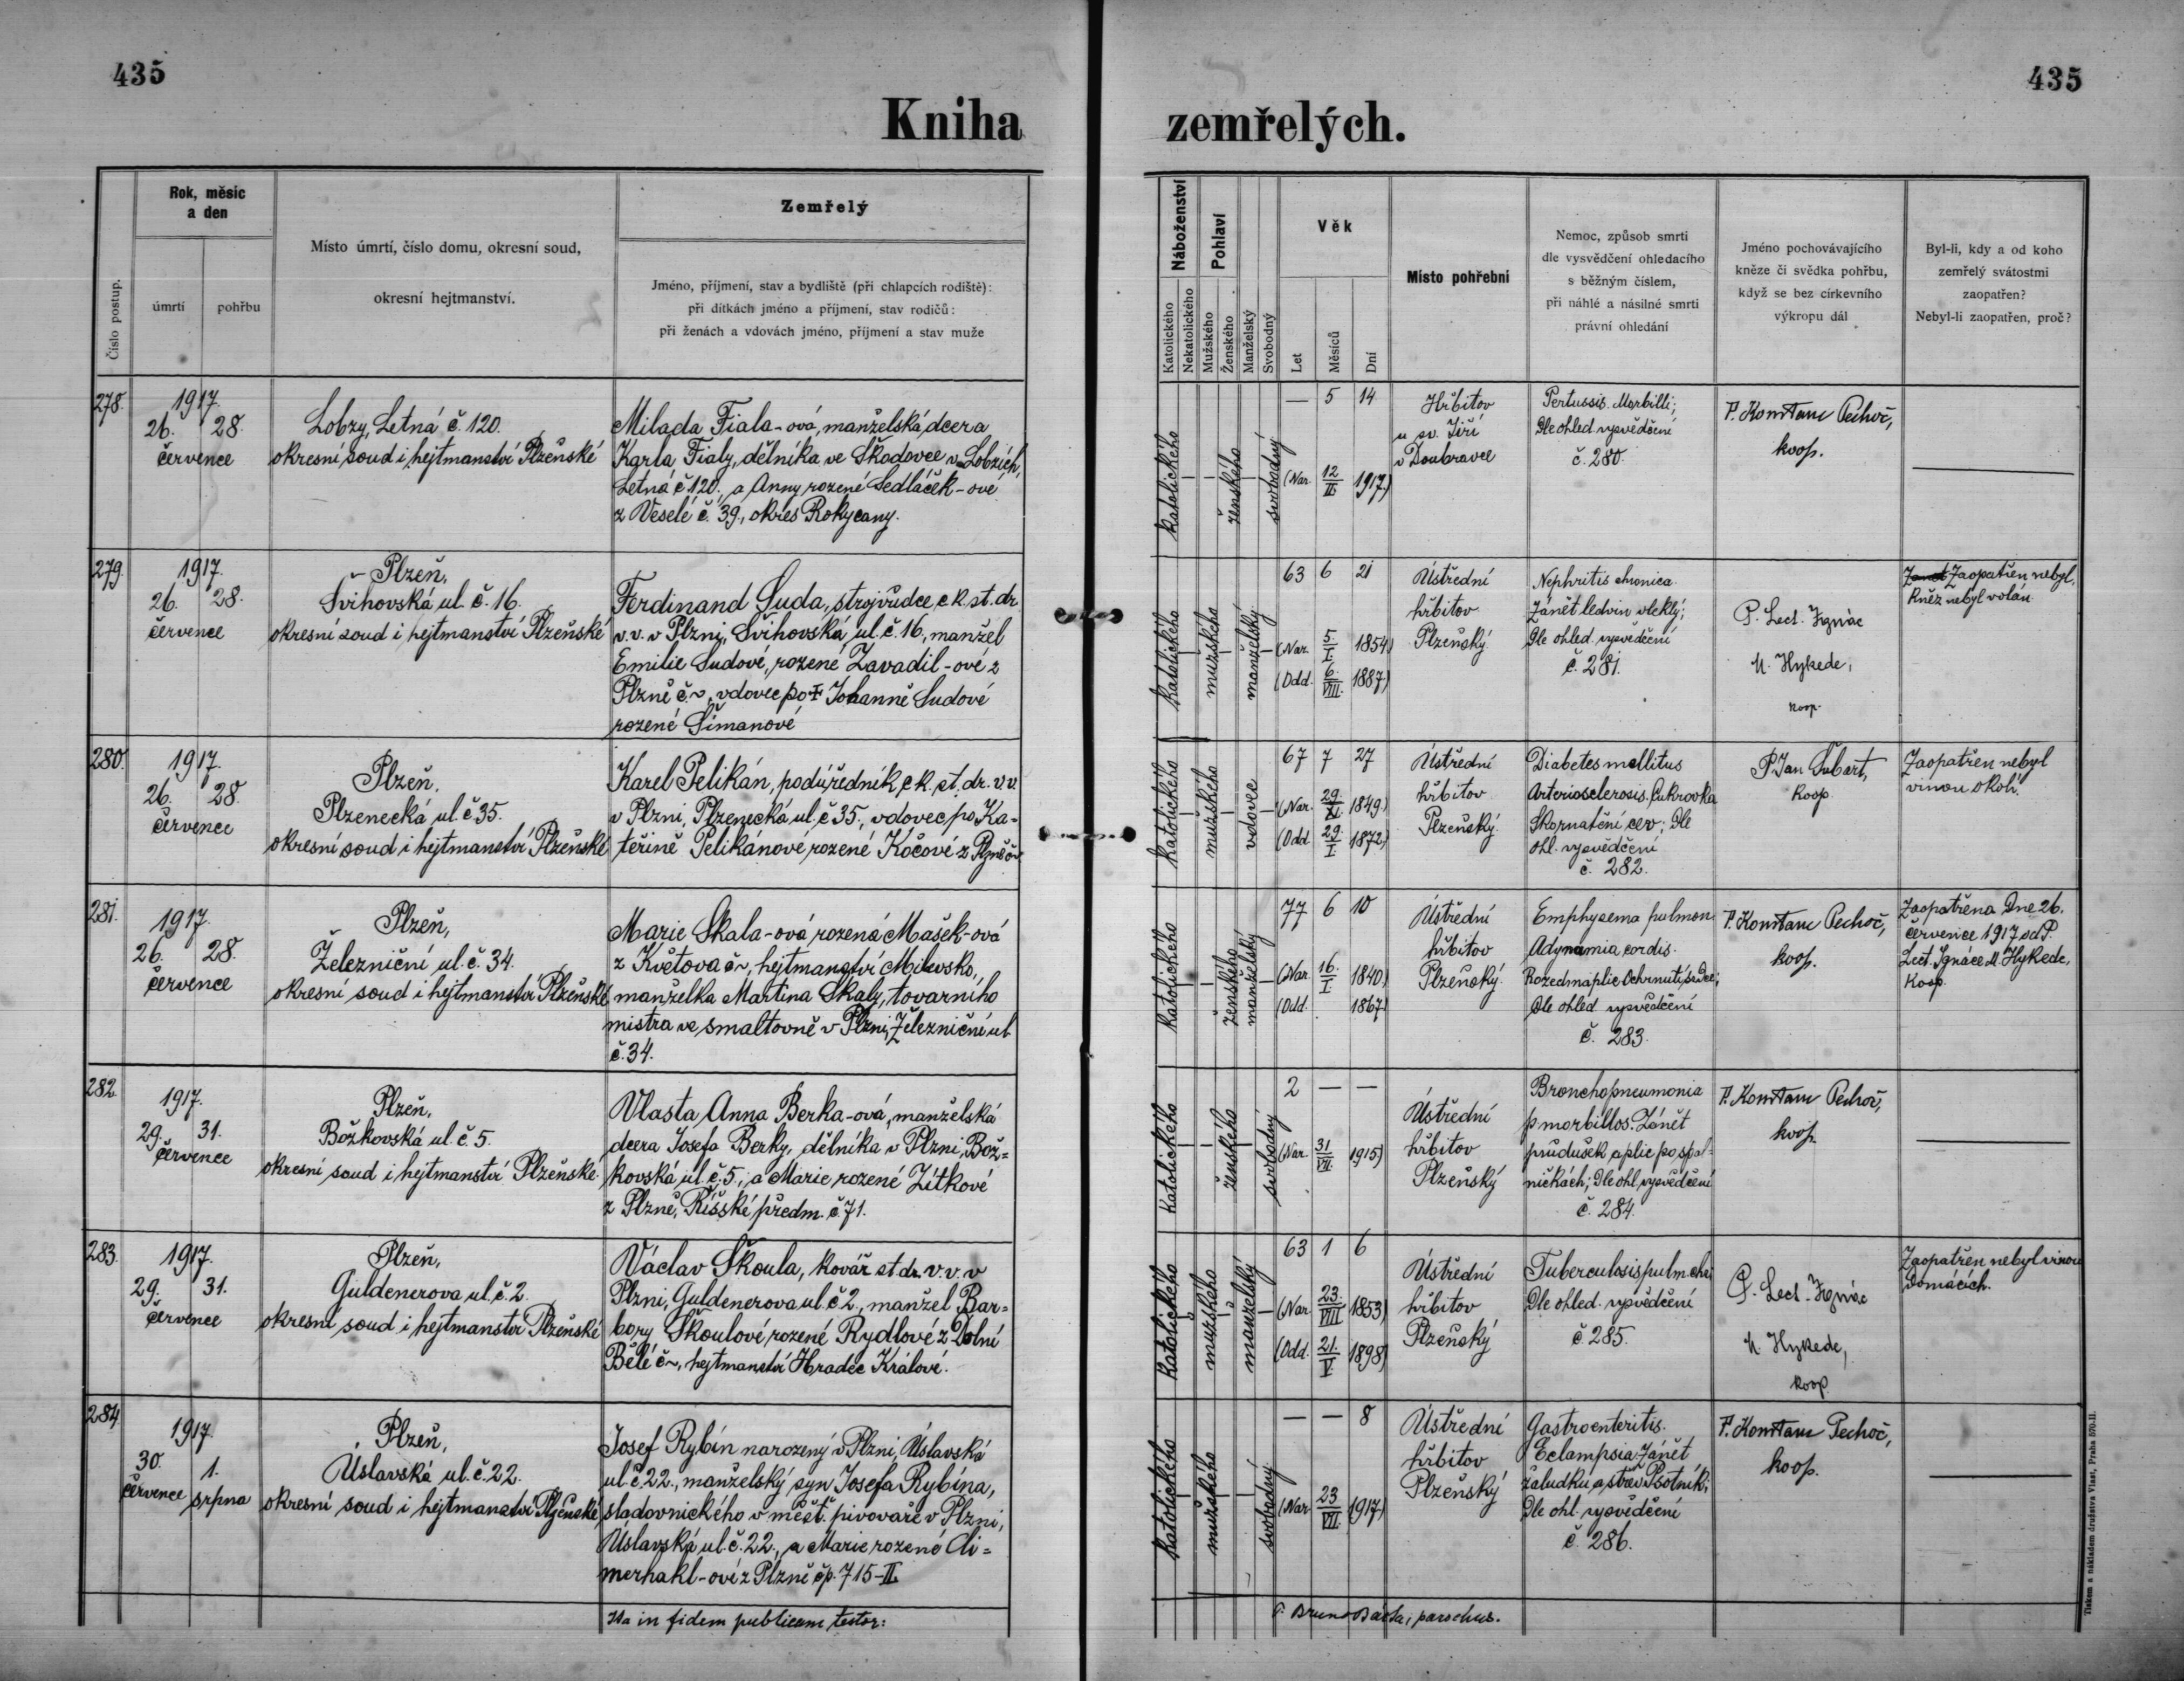 435
435
Kniha zemřelých.
Číslo postup.
Rok, měsíc
a den
úmrtí
pohřbu
Místo úmrtí, číslo domu, okresní soud,
okresní hejtmanství.
Zemřelý
Jméno, příjmení, stav a bydliště (při chlapcích rodiště):
při dítkách jméno a příjmení, stav rodičů:
při ženách a vdovách jméno, příjmení a stav muže
Náboženství
Katolického
Nekatolického
Pohlaví
Mužského
Ženského
Manželský
Svobodný
Věk
Let
Měsíců
Dní
Místo pohřební
Nemoc, způsob smrti
dle vysvědčení ohledacího
s běžným číslem,
při náhlé a násilné smrti
právní ohledání
Jméno pochovávajícího
kněze či svědka pohřbu,
když se bez církevního
výkropu dál
Byl-li, kdy a od koho
zemřelý svátostmi
zaopatřen?
Nebyl-li zaopatřen, proč?
278.
1917.
26. 28.
července
Lobzy, Letná č. 120.
okresní soud i hejtmanství Plzeňské
Milada Fiala-ová, manželská dcera
Karla Fialy, dělníka ve Škodovce v Lobzích,
Letná č. 120., a Anny rozené Sedláček-ové
z Veselé č. 39., okres Rokycany.
katolického
ženského
svobodný
— 5 14
(Nar. 12/II 1917.)
Hřbitov
u sv. Jiří
v Doubravce
Pertussis. Morbilli;
Dle ohled vysvědčení
č. 280.
P. Konstanc Pechoč,
koop.
279.
1917.
26. 28.
července
Plzeň,
Švihovská ul. č. 16.
okresní soud i hejtmanství Plzeňské
Ferdinand Suda, strojvůdce c. k. st. dr.
v. v. v Plzni, Švihovská ul. č. 16, manžel
Emilie Sudové, rozené Zavadil-ové z
Plzně č. ~, vdovec po † Johanně Sudové
rozené Šimanové
katolického
mužského
manželský
63 6 21
(Nar. 5./I. 1854)
(Odd. 6./VIII. 1887)
Ústřední
hřbitov
Plzeňský.
Nephritis chronica.
Zánět ledvin vleklý;
Dle ohled. vysvědčení
č. 281.
P. Lect. Ignác
M. Hykede,
koop.
Zaopatřen nebyl.
Kněz nebyl volán.
280.
1917.
26. 28.
července
Plzeň,
Plzenecká ul. č 35.
okresní soud i hejtmanství Plzeňské
Karel Pelikán, podúředník c. k. st. dr. v. v.
v Plzni, Plzenecká ul. č 35., vdovec po Ka-
teřině Pelikánové rozené Kočové z Plzně č ~
katolického
mužského
vdovec
67 7 27
(Nar. 29./XI. 1849.)
(Odd. 29./I 1872)
Ústřední
hřbitov
Plzeňský.
Diabetes mellitus
Arteriosclerosis. Cukrovka
Skornatění cev; Dle
ohl. vysvědčení
č. 282.
P. Jan Šubart,
koop.
Zaopatřen nebyl
vinou okolí.
281.
1917.
26. 28.
července
Plzeň,
Železniční ul. č. 34.
okresní soud i hejtmanství Plzeňské
Marie Skala-ová rozená Mašek-ová
z Květova č ~, hejtmanství Milevsko,
manželka Martina Skaly, továrního
mistra ve smaltovně v Plzni, Železniční ul.
č. 34.
katolického
ženského
manželský
77 6 10
(Nar. 16./I 1840.)
(Odd. 1867)
Ústřední
hřbitov
Plzeňský.
Emphysema pulmon.
Adynamia cordis.
Rozedma plic Ochrnutí srdce;
Dle ohled vysvědčení
č. 283.
P. Konstanc Pechoč,
koop.
Zaopatřena Dne 26.
července 1917 od P.
Lect. Ignáce M. Hykede,
Koop.
282.
1917.
29. 31.
července
Plzeň,
Božkovská ul. č 5.
okresní soud i hejtmanství Plzeňské.
Vlasta Anna Berka-ová, manželská
dcera Josefa Berky, dělníka v Plzni, Bož=
kovská ul. č. 5., a Marie rozené Zítkové
z Plzně, Říšské předm. č 71.
katolického
ženského
svobodný
2 — —
(Nar. 31/VII. 1915)
Ústřední
hřbitov
Plzeňský
Bronchopneumonia
p morbillos. Zánět
průdušek a plic po spal=
ničkách; Dle ohl. vysvědčení
č. 284.
P. Konstanc Pechoč,
koop.
283.
1917.
29. 31.
července
Plzeň,
Guldenerova ul. č. 2.
okresní soud i hejtmanství Plzeňské
Václav Škoula, kovář st dr. v. v. v
Plzni, Guldenerova ul. č 2., manžel Bar=
bory Škoulové rozené Rydlové z Dolní
Bělé č ~, hejtmanství Hradec Králové.
katolického
mužského
manželský
63 1 6
(Nar. 23./VIII 1853)
(Odd. 21./V 1898)
Ústřední
hřbitov
Plzeňský
Tuberculosis pulm.
Dle ohled. vysvědčení
č 285.
P. Lect. Ignác
M. Hykede,
koop.
Zaopatřen nebyl vinou
Domácích.
284.
1917.
30. 1.
července srpna
Plzeň,
Úslavská ul. č. 22.
okresní soud i hejtmanství Plzeňské
Josef Rybín narozený v Plzni, Úslavská
ul. č. 22., manželský syn Josefa Rybína,
sladovnického v měšť. pivovaře v Plzni,
Úslavská ul. č. 22., a Marie rozené Li=
merhakl-ové z Plzně čp. 715-II.
katolického
mužského
svobodný
— — 8
(Nar. 23/VII. 1917.)
Ústřední
hřbitov
Plzeňský
Gastroenteritis.
Eclampsia. Zánět
žaludku a střev. Psotník;
Dle ohl. vysvědčení
č. 286.
P. Konstanc Pechoč,
koop.
Ita in fidem publicam testor:
P. Bruno parochus.
Tiskem a nákladem družstva Vlast, Praha 570-II.